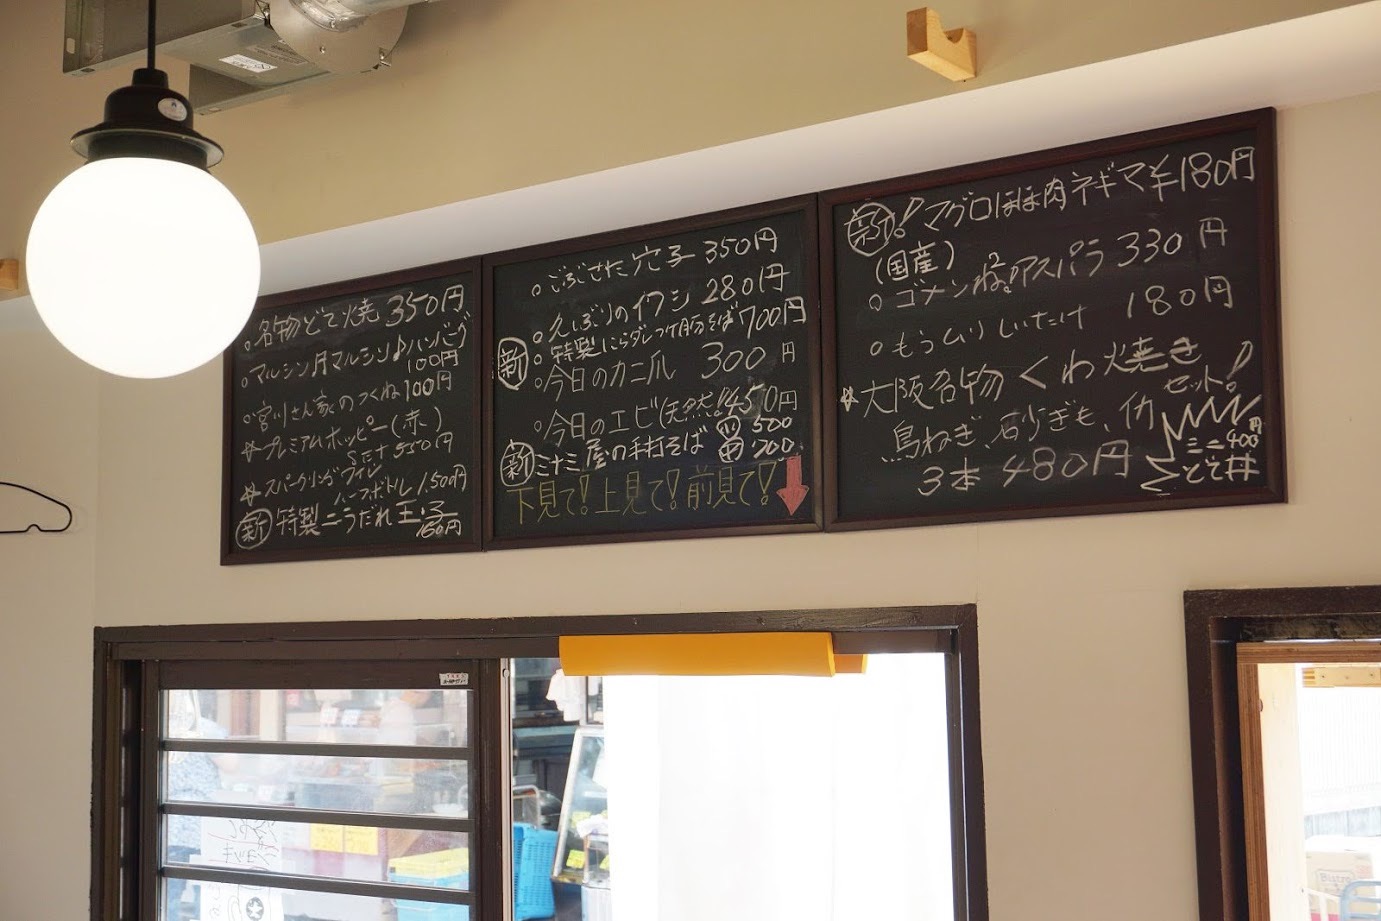 名物どて焼 350円
マルシン月マルシン♪ハンバーグ
100円
宮川さん家のつくね100円
プレミアムホッピー(赤)
SET 550円
スパークリングワイン
ハーフボトル 1,500円
新 特製ニラだれ玉子
150円
ごぶさた穴子 350円
久しぶりのイワシ 280円
新 特製にらダレつけ豚そば700円
今日のカニ爪 300円
今日のエビ(天然!)450円
新 ミナミ屋の手打そば
500
700
下見て!上見て!前見て!
新! マグロほほ肉ネギマ¥180円
(国産)
ゴメンね。アスパラ 330円
もうムリしいたけ 180円
大阪名物くわ焼き
セット!
鳥ねぎ、砂ぎも、
3本 480円
ミニ400円
どて丼